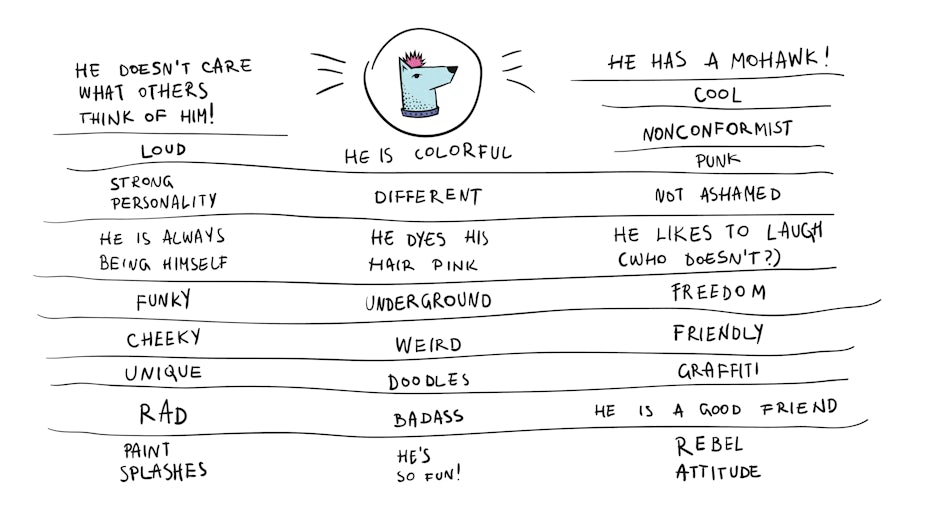 HE DOESN'T CARE
WHAT OTHERS
THINK OF HIM!
LOUD
STRONG
PERSONALITY
HE IS ALWAYS
BEING HIMSELF
FUNKY
CHEEKY
UNIQUE
RAD
PAINT
SPLASHES
HE IS COLORFUL
DIFFERENT
HE DYES HIS
HAIR PINK
UNDERGROUND
WEIRD
DOODLES
BADASS
HE'S
SO FUN!
HE HAS A MOHAWK!
COOL
NONCONFORMIST
PUNK
NOT ASHAMED
HE LIKES TO LAUGH
(WHO DOESN'T?)
FREEDOM
FRIENDLY
GRAFFITI
HE IS A GOOD FRIEND
REBEL
ATTITUDE